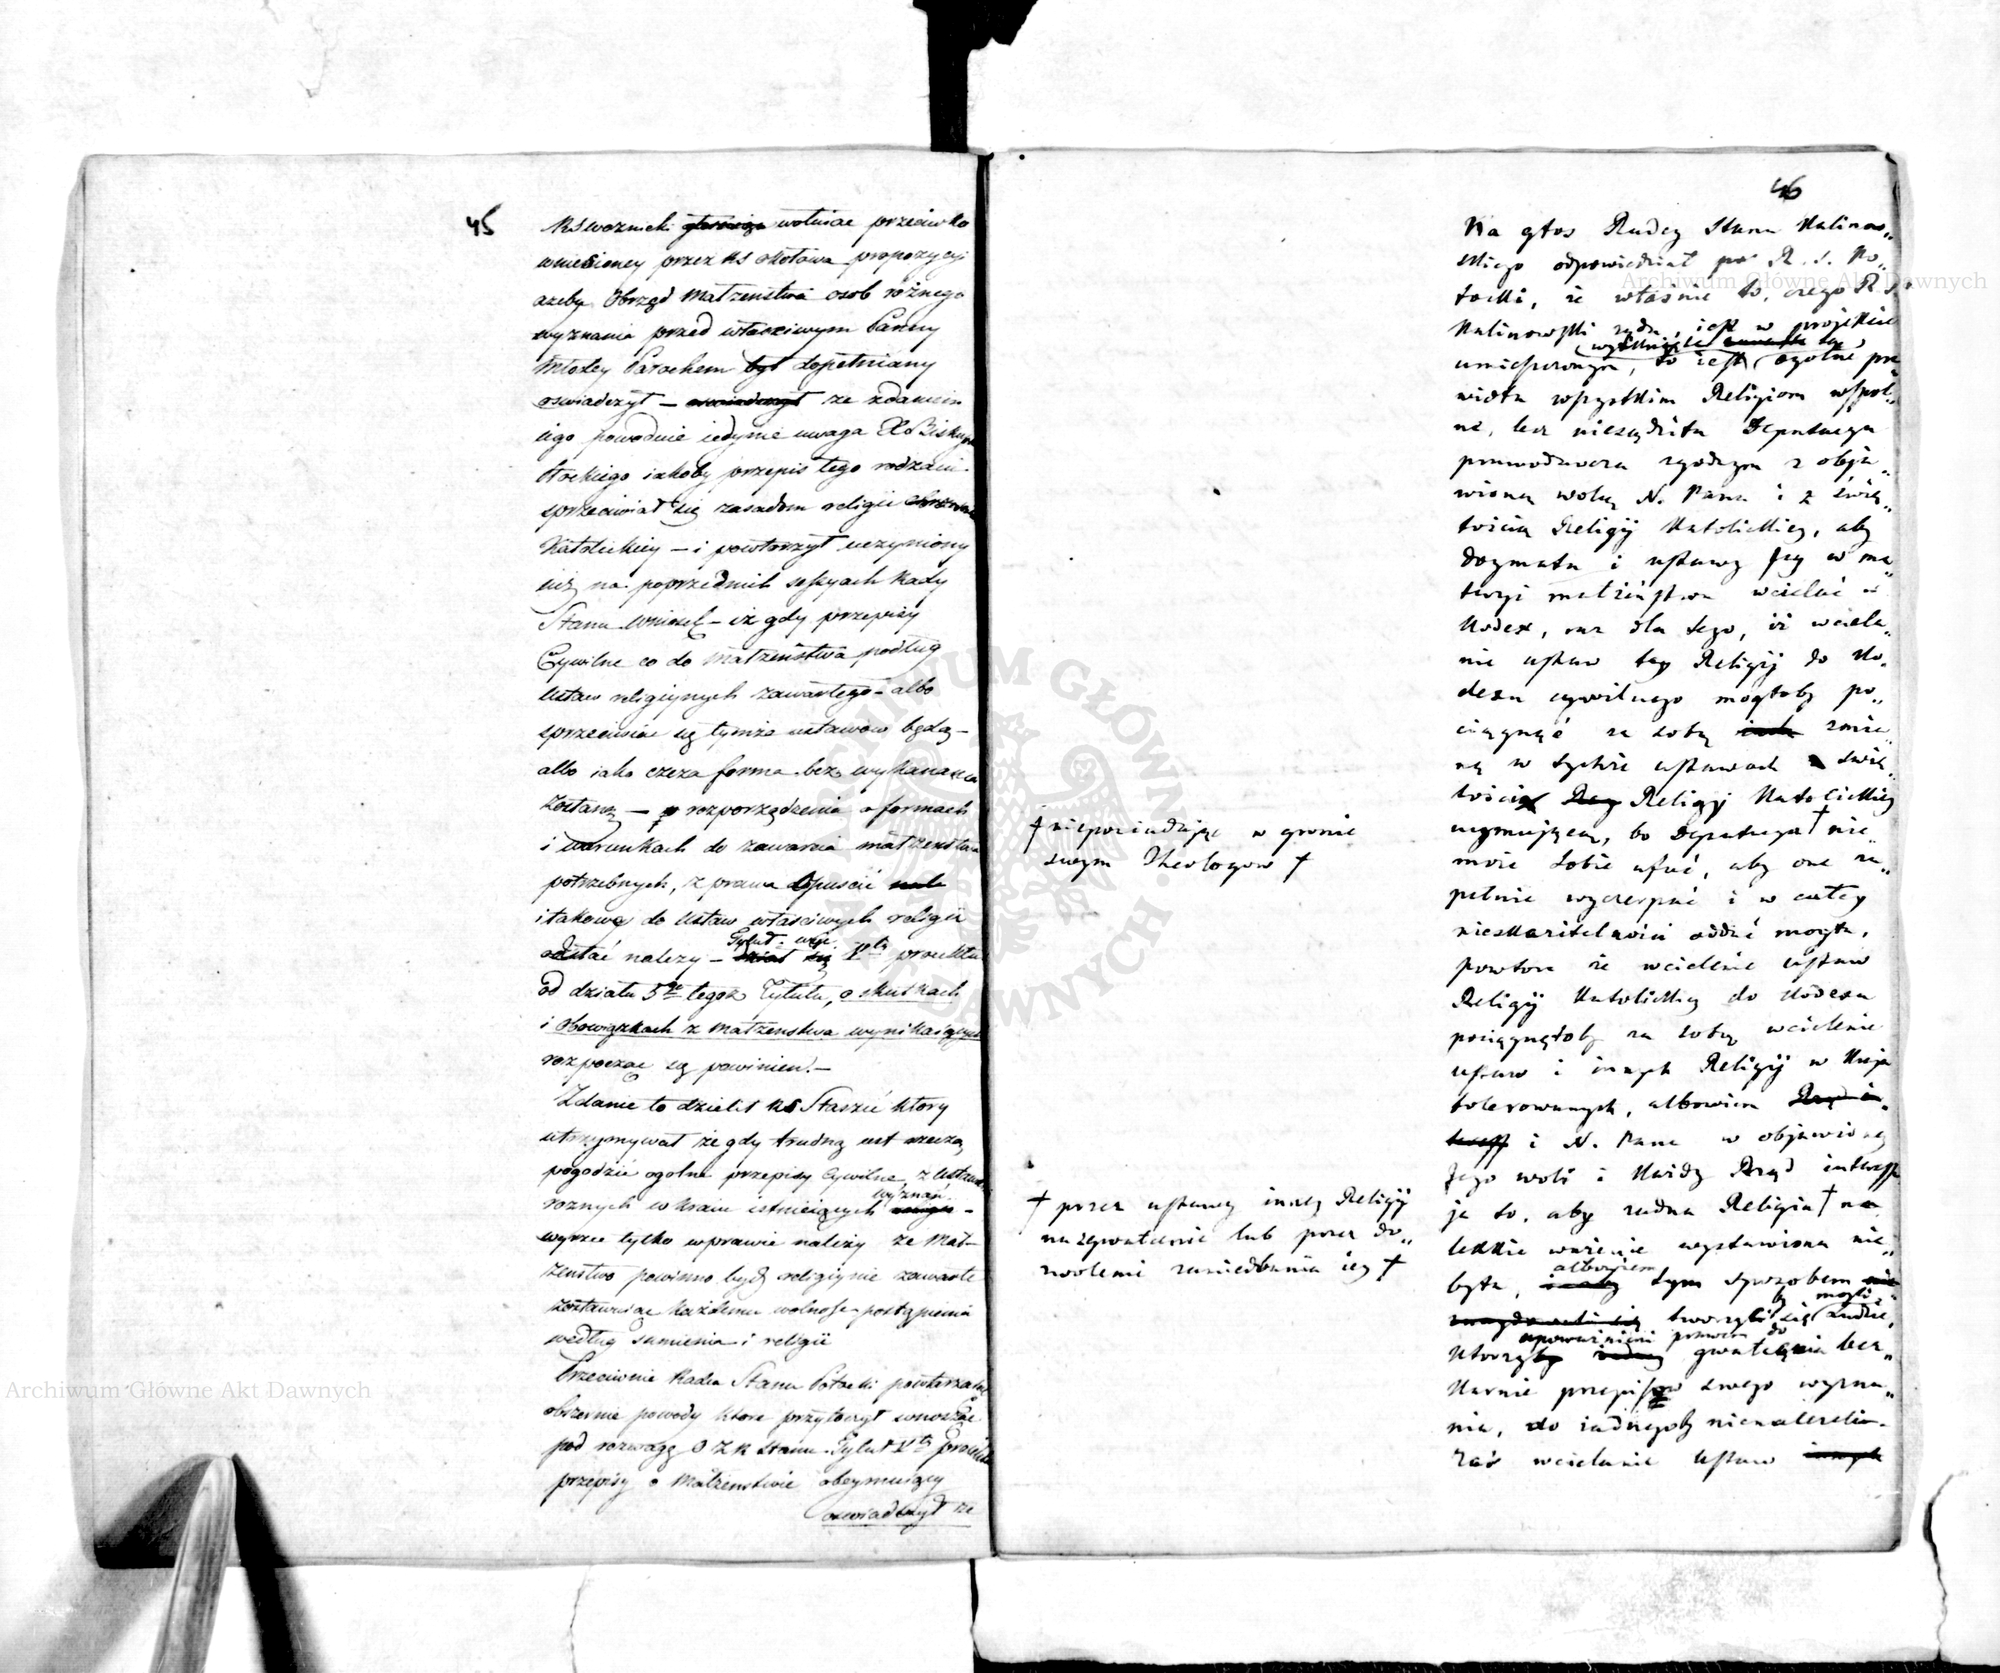 45
RS Woznicki głosuiąc wotuiąc przeciwko
wniesioney przez RS okołowa propozycyi
azeby Obrzęd Małżeństwa osob rożnego
wyznania przed właściwym Panny
Młodey Parochem był dopełniany
oswiadczył – oswiadczył ze zdaniem
iego powodnie iedynie uwaga X Biskupa
iakoby przepis tego rodzaiu
sprzeciwiał się zasadom religii
Katolickiey – i powtorzył uczyniony
iuż na poprzednich sessyach Rady
Stanu wniosek – iż gdy przepisy
Cywilne co do Małżeństwa podług
Ustaw religiynych zawartego – albo
sprzeciwiać się tymże ustawom będą –
albo iako czcza forma bez wykonania
zostaną – rozporządzenia o formach
i warunkach do zawarcia małżeństwa
potrzebnych, z prawa opuścić
i takowe do Ustaw właściwych religii
odesłać nalezy –
Tytuł więc
dział się Vty proiektu
od działu 5go tegoż Tytułu, o skutkach
i obowiązkach z Małżenstwa wynikaiących
rozpocząc się powinien. –
Zdanie to dzielił RS Staszic ktory
utrzymywał że gdy trudną iest rzeczą
pogodzić ogolne przepisy Cywilne z Ustawami
wyznań
roznych w kraiu istnieiących religii –
wyrzec tylko w prawie należy że Mał-
żenstwo powinno bydź religiynie zawarte
zostawuiąc każdemu wolność postąpienia
według sumienia i religii
Przeciwnie Radca Stanu Potocki powtarzaiąc
obszernie powody ktore przytoczył wnosząc
pod rozwagę O Z R Stanu Tytuł Vty proiektu
przepisy o Małżenstwie obeymuiący
oswiadczył ze
46
Na głos Radcy Stanu Kalinow„
skiego odpowiedział po R. S. Po„
tocki, że własnie to, czego R. S.
Kalinowski żąda, iest w projekcie
umieszczonym, to iest ogolne pra„
widła wszystkim Religiom wspol„
ne, lecz niesądziła Deputacya
prawodawcza zgodnym z obja„
wioną wolą N. Pana i z świę„
tością Religij Katolickiey, aby
dogmata i ustawy Jey w ma„
teryi małżeństwa wcielać w
Kodex, raz dla tego, iż wciela„
nie ustaw tey Religij do Ko„
dexu cywilnego mogłoby po„
ciągnąć za sobą zmia„
nę w tychże ustawach świę„
tości Religij Katolickiey
uymującą, bo Deputacya † nie„
może sobie ufać, aby one zu„
pełnie wyczerpnąć i w całey
nieskazitelności oddać mogła,
powtore że wcielenie ustaw
Religij Katolickiey do Kodexu
pociągnęłoby za sobą wcielenie
ustaw i innych Religij w Kraju
tolerowanych, albowiem
i N. Pana w objawioney
Jego woli i Każdy Rząd interess
ja to, aby żadna Religia † na
lekkie ważenie wystawiona nie„
albowiem
była, i aby tym sposobem
by mogli
tworzyli się ludzie,
upoważnieni prawem do
Ktorzyby gwałcenia bez„
karnie przepisow swego wyzna„
nia, do żadnegoby nienależeli.
Zaś wcielanie Ustaw innych
† nieposiadając w gronie
swym Theologow †
† przez ustawy inney Religij
na zgwałcenie lub przez do„
zwolenie zaniedbania iey †